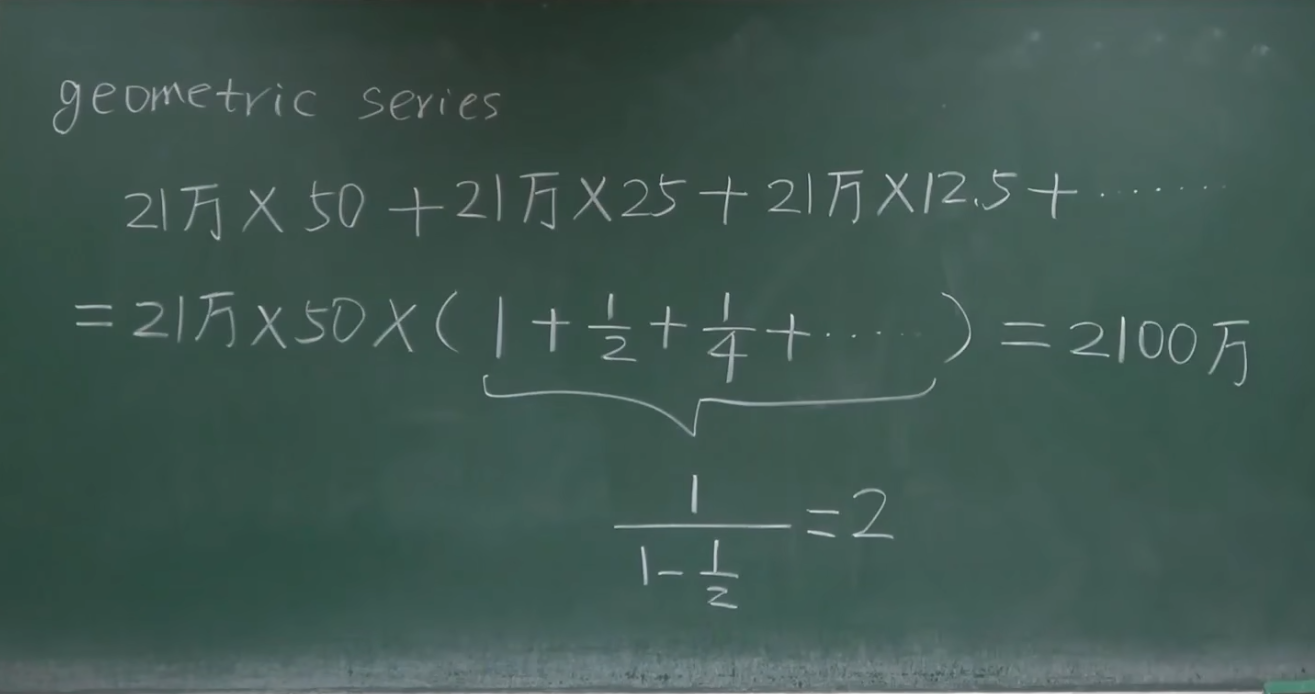 geometric series
21万×50+21万×25+21万×12.5+········
=21万×50×(1+1/2+1/4+·····)=2100万
1/(1-1/2)=2